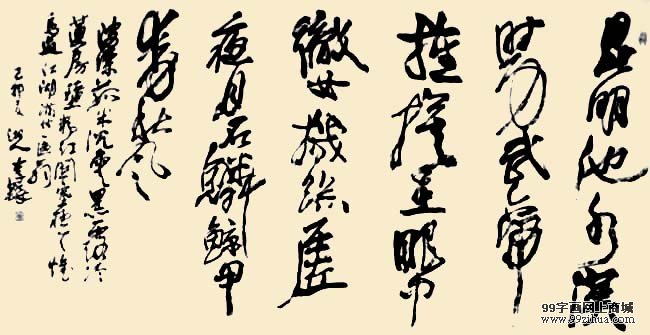 昆明池水漢
时功武帝
旌旗在眼中
織女機絲虛
夜月石鱗鯨甲
動秋風
波漂菰米沉雲黑露冷
蓮房墜粉紅關塞極天惟
鳥道江湖滿地一漁翁
己卯夏
99字画网上商城
www.99zihua.com